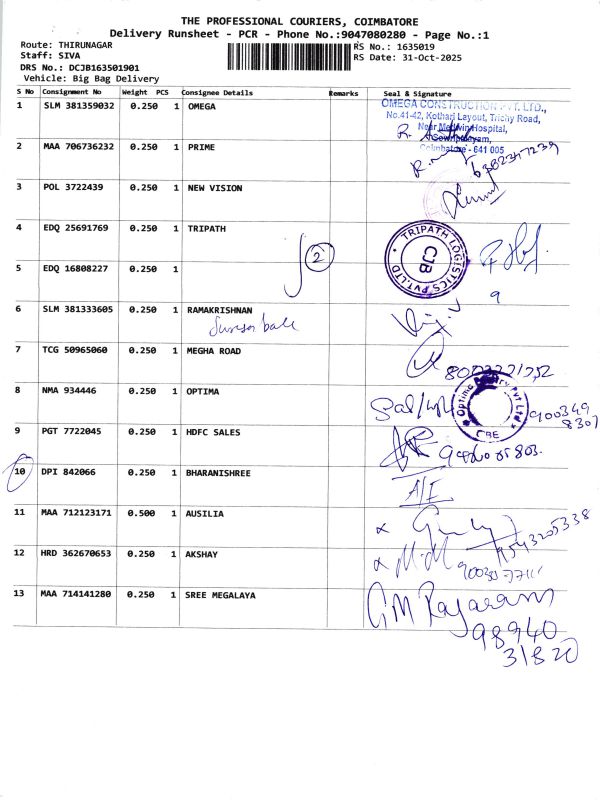 THE PROFESSIONAL COURIERS, COIMBATORE
Delivery Runsheet - PCR - Phone No.:9047080280 - Page No.:1
Route: THIRUNAGAR
RS No.: 1635019
Staff: SIVA
RS Date: 31-Oct-2025
DRS No.: DCJB163501901
Vehicle: Big Bag Delivery
S No Consignment No Weight PCS Consignee Details Remarks Seal & Signature
1 SLM 381359032 0.250 1 OMEGA
OMEGA CONSTRUCTION PVT. LTD.,
No.41-42, Kothari Layout, Trichy Road,
Near Medwin Hospital,
Sowripalayam,
Coimbatore - 641 005
2 MAA 706736232 0.250 1 PRIME
3 POL 3722439 0.250 1 NEW VISION
4 EDQ 25691769 0.250 1 TRIPATH
TRIPATH LOGISTICS PVT.LTD
CJB
2
5 EDQ 16808227 0.250 1
9
6 SLM 381333605 0.250 1 RAMAKRISHNAN
7 TCG 50965060 0.250 1 MEGHA ROAD
8 NMA 934446 0.250 1 OPTIMA
CBE
9 PGT 7722045 0.250 1 HDFC SALES
10 DPI 842066 0.250 1 BHARANISHREE
A/F
11 MAA 712123171 0.500 1 AUSILIA
9543205338
12 HRD 362670653 0.250 1 AKSHAY
13 MAA 714141280 0.250 1 SREE MEGALAYA
GM Rajaram
98940
31820